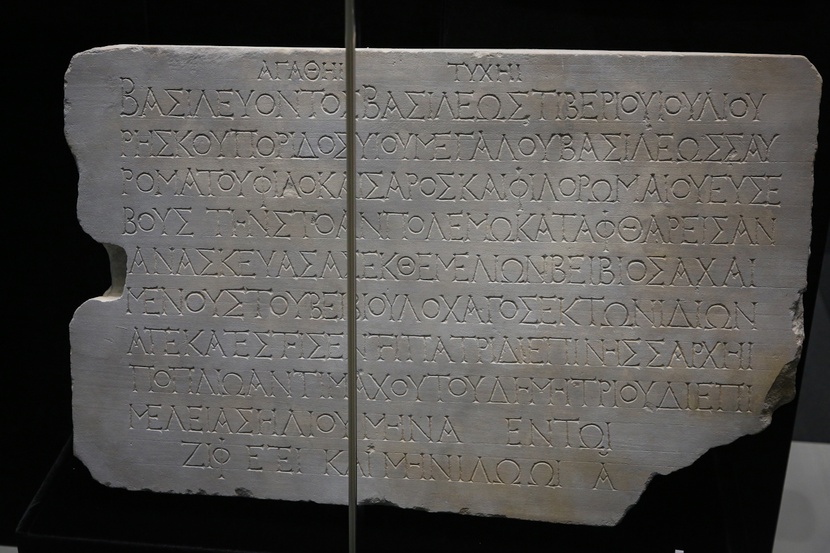 ΑΓΑΘΗΙ ΤΥΧΗΙ
ΒΑΣΙΛΕΥΟΝΤΟΣΒΑΣΙΛΕΩΣΤΙΒΕΡΙΟΥΙΟΥΛΙΟΥ
ΡΗΣΚΟΥΠΟΡΙΔΟΣΥΙΟΥΜΕΓΑΛΟΥΒΑΣΙΛΕΩΣΣΑΥ
ΡΟΜΑΤΟΥΦΙΛΟΚΑΙΣΑΡΟΣΚΑΙΦΙΛΟΡΩΜΑΙΟΥΕΥΣΕ
ΒΟΥΣ ΤΗΝΣΤΟΑΝΠΟΛΕΜΩΚΑΤΑΦΘΑΡΕΙΣΑΝ
ΑΝΑΣΚΕΥΑΣΑΣΕΚΘΕΜΕΛΙΩΝΒΕΙΒΙΟΣΑΧΑΙ
ΜΕΝΟΥΣΤΟΥΒΕΙΒΙΟΥΛΟΧΑΓΟΣΕΚΤΩΝΙΔΙΩΝ
ΑΠΕΚΑΕΣΤΗΣΕΝΤΗΠΑΤΡΙΔΙΕΠΙΝΗΣΣΑΡΧΗΙ
ΠΟΠΙΛΩΑΝΤΙΜΑΧΟΥΤΟΥΔΗΜΗΤΡΙΟΥΔΙΕΠΙ
ΜΕΛΕΙΑΣΗΛΙΟΥΜΗΝΑ ΕΝΤΩΙ
ΖΙΦ ΕΤΕΙ ΚΑΙ ΜΗΝΙΛΩΩΙ Α